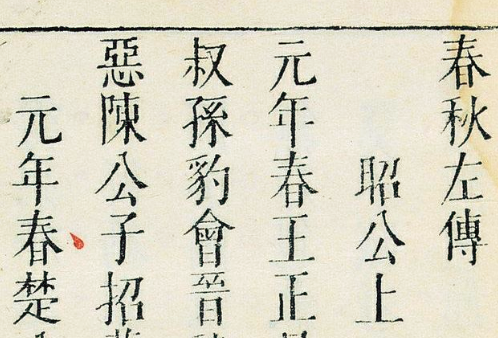 春秋左傳
昭公上
元年春王正
叔孫豹會晉
惡陳公子招
元年春楚